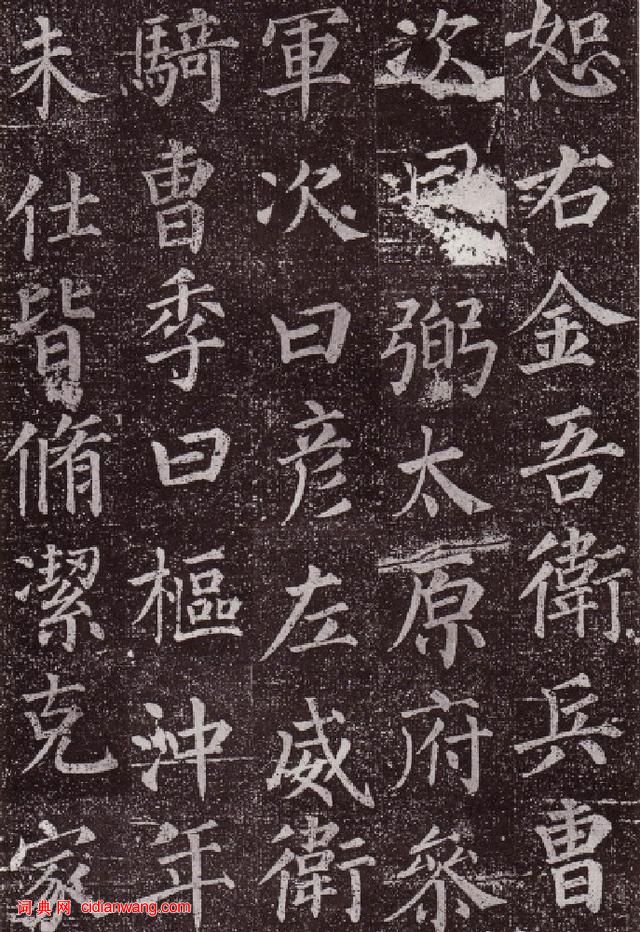 恕右金吾衛兵曹
次曰弼太原府參
軍次曰彦左威衛
騎曹季曰樞沖年
未仕皆脩潔克家
词典网 cidianwang.com